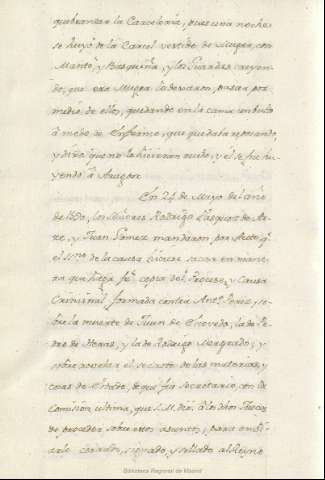 quebrantar la Carceleria, pues una noche
se huyó de la Carcel vestido de Muger, con
Manto, y Basquiña, y los Guardas creyen-
do, que era Muger la dexaron, pasar por
medio de ellos, quedando en la cama un bulto
à modo de Enfermo, que quedaba reposando,
y dixo que no le hicieran ruido, y él se fue hu-
yendo à Aragon.
En 24 de Mayo del año
de 1590, los Señores Rodrigo Vazquez de Ar-
ze, y Juan Gomez mandaron por Auto, q.e
el de la causa hiciese sacar en mane-
ra que haga feé, copia del Proceso, y Causa
Criminal formada contra Ant.o Perez, so-
bre la muerte de Juan de Escovedo, la de Pe-
dro de Hera, y la de Rodrigo Morgado, y
sobre revelar el secreto de las materias, y
cosas de Estado, de que fue Secretario, con la
Comision ultima, que S.M. dio, à los dhos Jueces
de proceder sobre estos asuntos, para embi-
arle cerrado, signado, y sellado al Reyno
Biblioteca Regional de Madrid